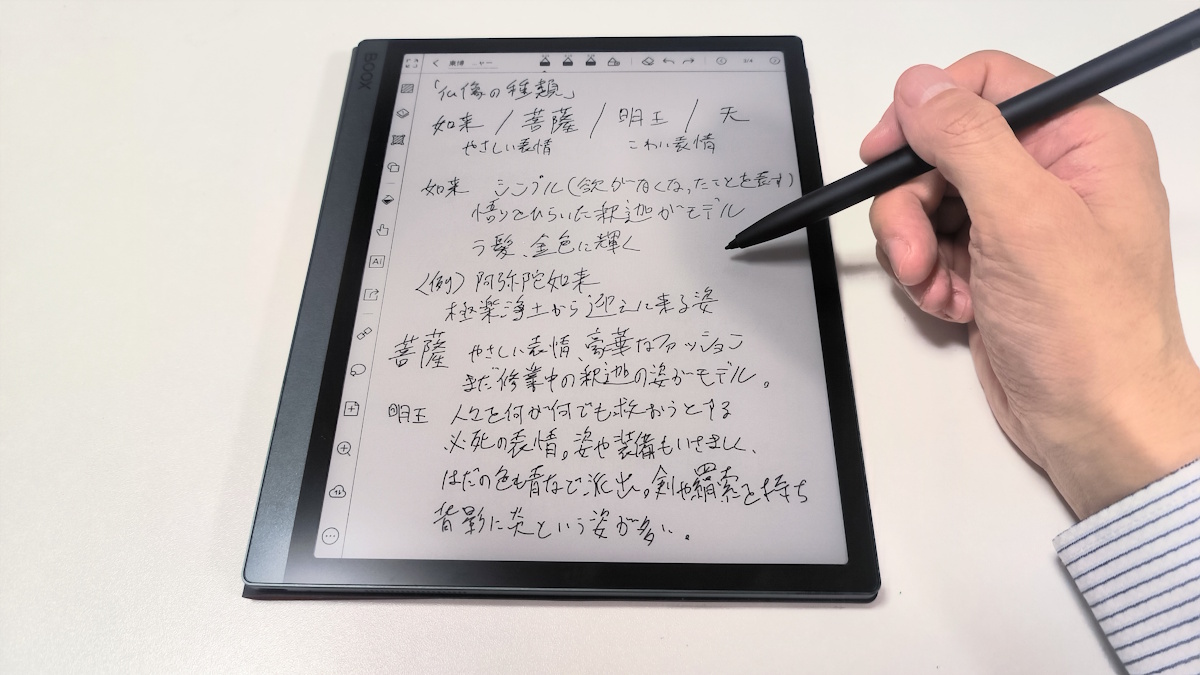 BOOX
東博
AI
3/4
「仏像の種類」
如来 / 菩薩 / 明王 / 天
やさしい表情 こわい表情
如来 シンプル(欲がなくなったことを表す)
悟りをひらいた釈迦がモデル
髪、金色に輝く
〈例〉阿弥陀如来
極楽浄土から迎えに来る姿
菩薩 やさしい表情、豪華なファッション
まだ修業中の釈迦の姿がモデル。
明王 人々を何が何でも救おうとする
必死の表情。姿や装備もいさましく、
はだの色も青など派出。剣や羂索を持ち
背景に炎という姿が多い。